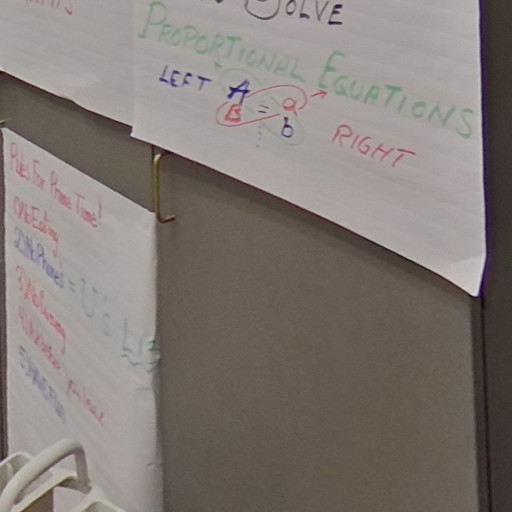 SOLVE
PROPORTIONAL EQUATIONS
LEFT A = a
B b RIGHT
Rules For Prime Time!
1) No Eating
2) No Phones = U's
3) No
4)
5) HAVE FUN!